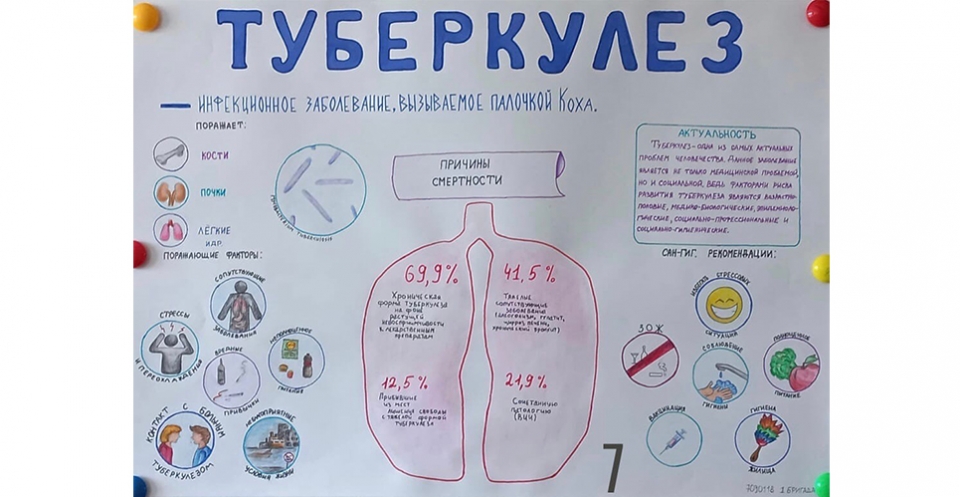 ТУБЕРКУЛЕЗ
— ИНФЕКЦИОННОЕ ЗАБОЛЕВАНИЕ, ВЫЗЫВАЕМОЕ ПАЛОЧКОЙ КОХА.
ПОРАЖАЕТ:
КОСТИ
ПОЧКИ
ЛЁГКИЕ
И ДР.
ПОРАЖАЮЩИЕ ФАКТОРЫ:
СОПУТСТВУЮЩИЕ
ЗАБОЛЕВАНИЯ
СТРЕССЫ
И ПЕРЕОХЛАЖДЕНИЯ
ВРЕДНЫЕ
ПРИВЫЧКИ
ПИТАНИЕ
КОНТАКТ С БОЛЬНЫМ
ТУБЕРКУЛЕЗОМ
НЕБЛАГОПРИЯТНЫЕ
УСЛОВИЯ ЖИЗНИ
ПРИЧИНЫ
СМЕРТНОСТИ
69,9%
Хроническая
форма туберкулеза
на фоне
растущей
невосприимчивости
к лекарственным
препаратам
41,5%
Тяжелые
сопутствующие
заболевания
12,5%
Прибывшие
из мест
лишения свободы
с тяжелой формой
туберкулеза
21,9%
Сочетанную
патологию
(ВИЧ)
АКТУАЛЬНОСТЬ
ТУБЕРКУЛЕЗ - ОДНА ИЗ САМЫХ АКТУАЛЬНЫХ
ПРОБЛЕМ ЧЕЛОВЕЧЕСТВА. ДАННОЕ ЗАБОЛЕВАНИЕ
ЯВЛЯЕТСЯ НЕ ТОЛЬКО МЕДИЦИНСКОЙ ПРОБЛЕМОЙ,
НО И СОЦИАЛЬНОЙ, ВЕДЬ ФАКТОРАМИ РИСКА
РАЗВИТИЯ ТУБЕРКУЛЕЗА ЯВЛЯЮТСЯ ВОЗРАСТНО-
ПОЛОВЫЕ, МЕДИКО-БИОЛОГИЧЕСКИЕ, ЭПИДЕМИОЛО-
ГИЧЕСКИЕ, СОЦИАЛЬНО-ПРОФЕССИОНАЛЬНЫЕ И
СОЦИАЛЬНО-ГИГИЕНИЧЕСКИЕ.
САН-ГИГ. РЕКОМЕНДАЦИИ:
СТРЕССОВЫХ
СИТУАЦИЙ
ЗОЖ
СОБЛЮДЕНИЕ
ГИГИЕНЫ
ПОЛНОЦЕННОЕ
ПИТАНИЕ
ВАКЦИНАЦИЯ
ГИГИЕНА
ЖИЛИЩА
7
7090118 1 БРИГАДА